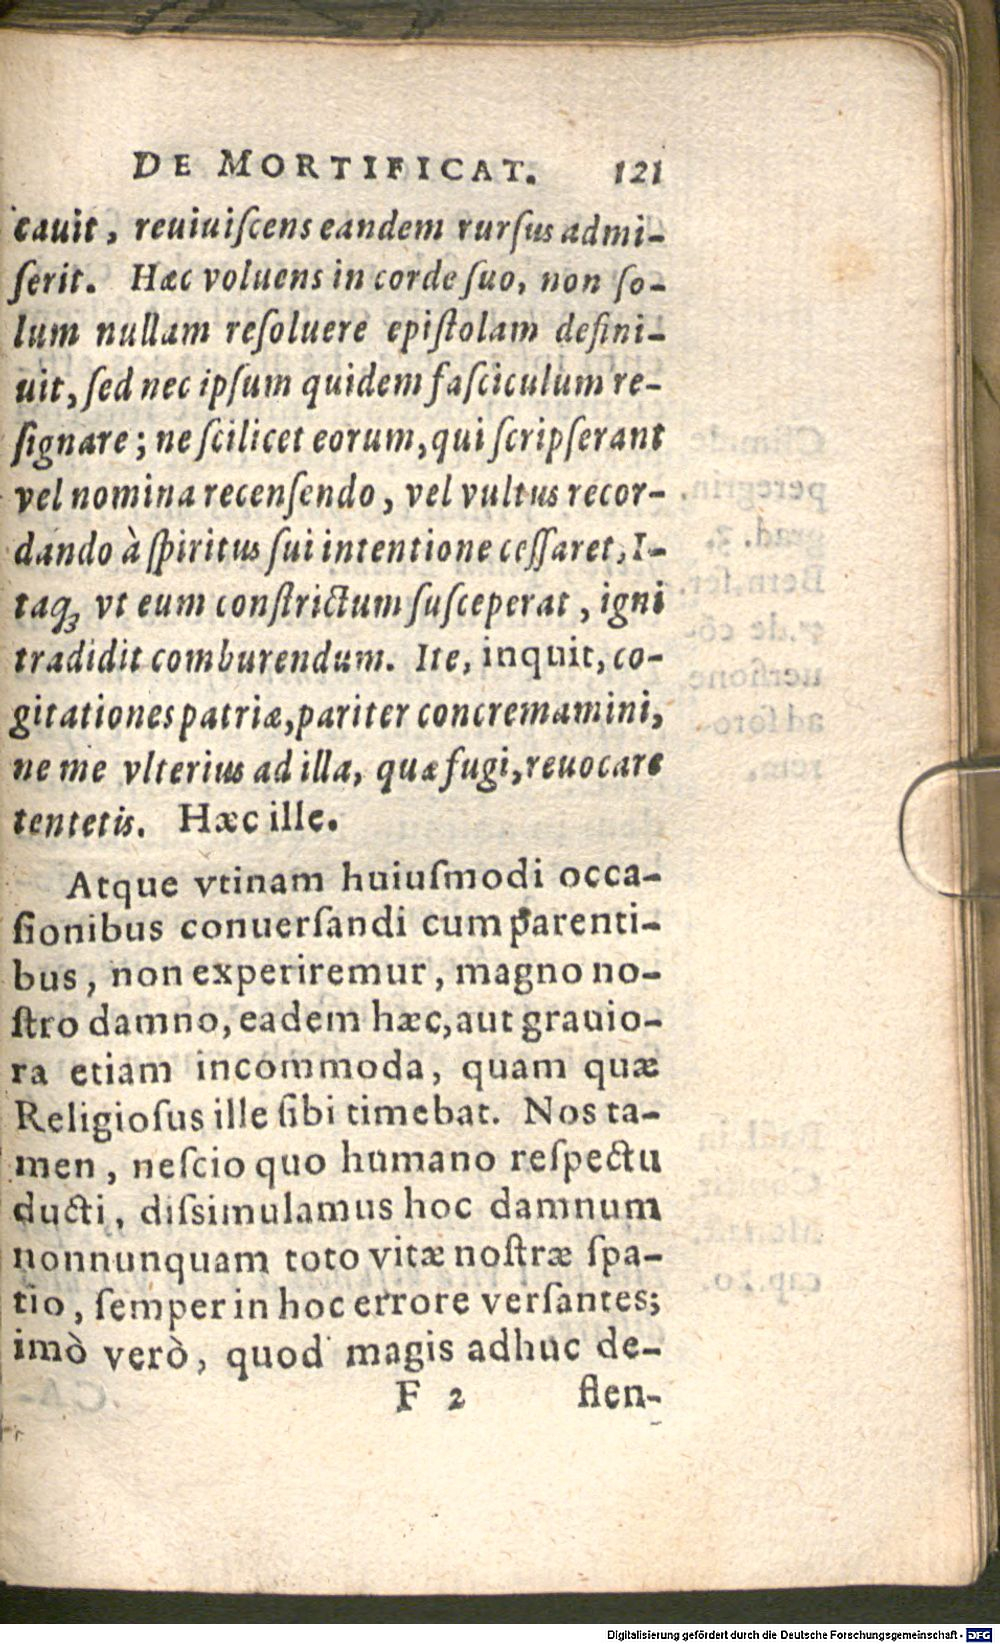 DE MORTIFICAT. 121
cauit, reuiuiſcens eandem rurſus admi-
ſerit. Hæc voluens in corde ſuo, non ſo-
lum nullam reſoluere epiſtolam defini-
uit, ſed nec ipſum quidem faſciculum re-
ſignare; ne ſcilicet eorum, qui ſcripſerant
vel nomina recenſendo, vel vultus recor-
dando à ſpiritus ſui intentione ceſſaret, I-
taq́; vt eum conſtrictum ſuſceperat, igni
tradidit comburendum. Ite, inquit, co-
gitationes patriæ, pariter concremamini,
ne me vlterius ad illa, quæ fugi, reuocare
tentetis. Hæc ille.
Atque vtinam huiuſmodi occa-
ſionibus conuerſandi cum parenti-
bus, non experiremur, magno no-
ſtro damno, eadem hæc, aut grauio-
ra etiam incommoda, quam quæ
Religioſus ille ſibi timebat. Nos ta-
men, neſcio quo humano reſpectu
ducti, diſsimulamus hoc damnum
nonnunquam toto vitæ noſtræ ſpa-
tio, ſemper in hoc errore verſantes;
imò verò, quod magis adhuc de-
F 2 flen-
Digitalisierung gefördert durch die Deutsche Forschungsgemeinschaft - DFG